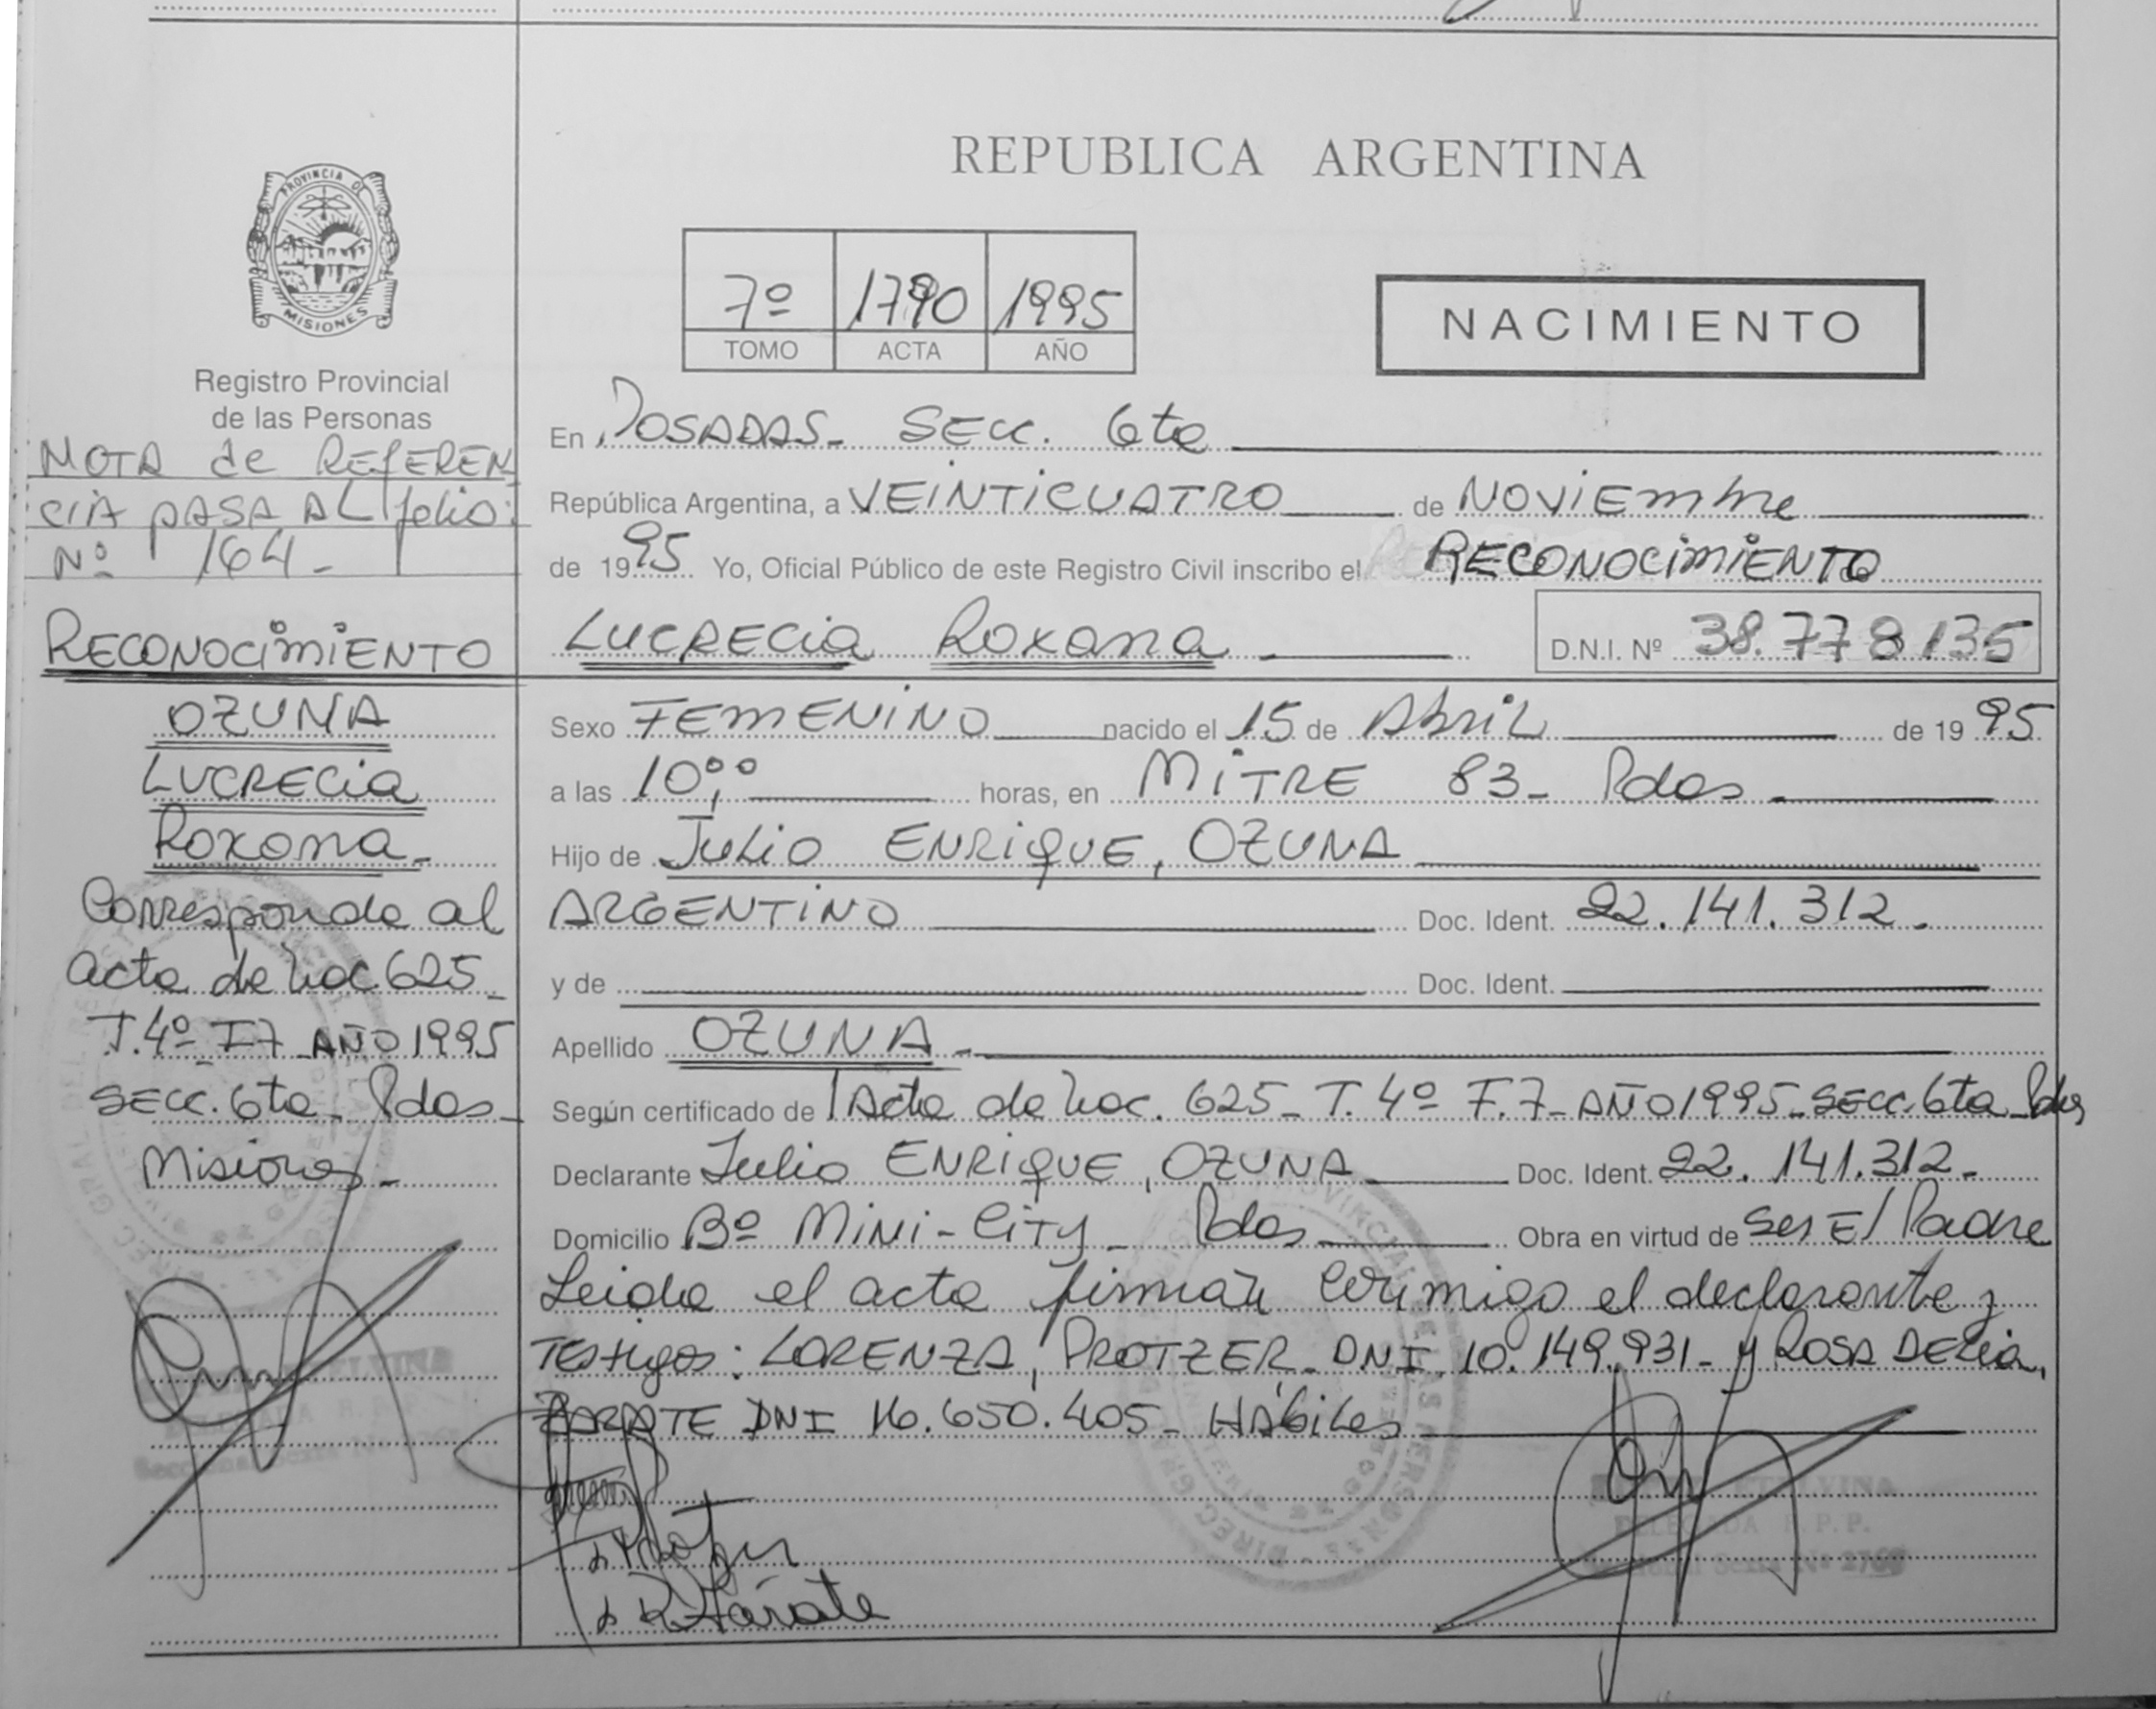 PROVINCIA DE
MISIONES
Registro Provincial
de las Personas
NOTA de REFEREN
CIA PASA AL folio:
Nº 164-
RECONOCIMIENTO
OZUNA
LUCRECIA
Roxana-
Corresponde al
acta de Nac. 625-
T. 4º F7 AÑO 1995
SECC. 6ta- Pdas-
Misiones-
REPUBLICA ARGENTINA
7º 1790 1995
TOMO ACTA AÑO
NACIMIENTO
En POSADAS- SECC. 6ta
República Argentina, a VEINTICUATRO de NOVIEmbre
de 1995 Yo, Oficial Público de este Registro Civil inscribo el RECONOCIMIENTO de
LUCRECIA Roxana - D.N.I. Nº 38.778.135
Sexo FEMENINO nacido el 15 de Abril de 1995
a las 10,00 horas, en MITRE 83- Pdas -
Hijo de Julio ENRIQUE, OZUNA
ARGENTINO Doc. Ident. 22.141.312.
y de Doc. Ident.
Apellido OZUNA -
Según certificado de Acta de Nac. 625- T. 4º F.7- AÑO 1995- SECC. 6ta Pdas
Declarante Julio ENRIQUE, OZUNA Doc. Ident. 22.141.312-
Domicilio Bº MINI-CITY- Pdas Obra en virtud de ser El Padre
Leida el acta firman conmigo el declarante y
Testigos: LORENZA, PROTZER- DNI 10.149.931- y ROSA DELIA,
ZARATE DNI 16.650.405- HÁBILES
ETELVINA
DELEGADA R.P.P.
R Zárate